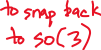 to snap back
to so(3)